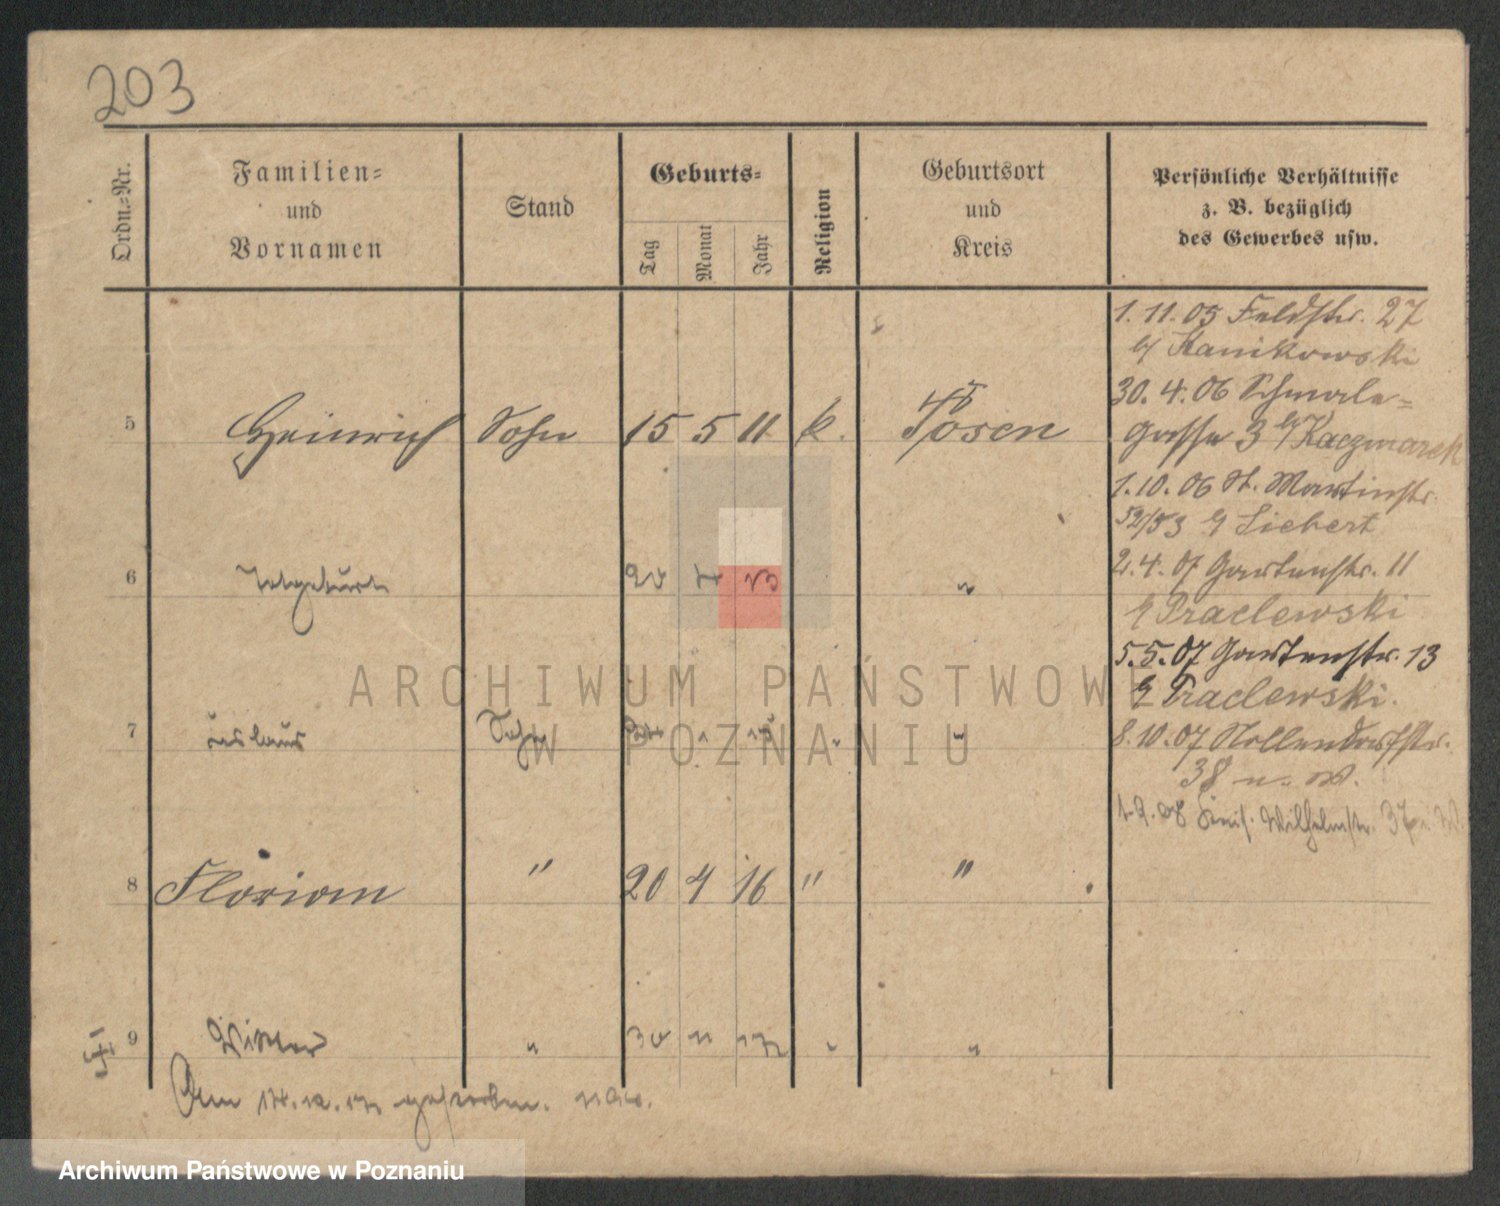 203
Ordn.-Nr.
Familien- und Vornamen
Stand
Geburts-
Tag Monat Jahr
Religion
Geburtsort und Kreis
Persönliche Verhältnisse
z. B. bezüglich
des Gewerbes usw.
1. 11. 05 Feldstr. 27
b/ Stanikowski
30. 4. 06 Schmale-
5 Heinrich Sohn 15 5 11 k. Posen
gasse 3 b/ Kaczmarek
1. 10. 06 St. Martinstr.
52/53 b/ Siebert
2. 4. 07 Gartenstr. 11
6 Totgeburt 20 4 13 "
b/ Praclewski
5. 5. 07 Gartenstr. 13
b/ Praclewski.
7 Sohn " " "
8. 10. 07 Nollendorfstr.
38 n. W.
Wilhelmstr. 37
8 Florian " 20 4 16 " "
9 Viktor " 30 11 17 " "
Am 14. 12. 17 gestorben.
ARCHIWUM PAŃSTWOWE
W POZNANIU
Archiwum Państwowe w Poznaniu